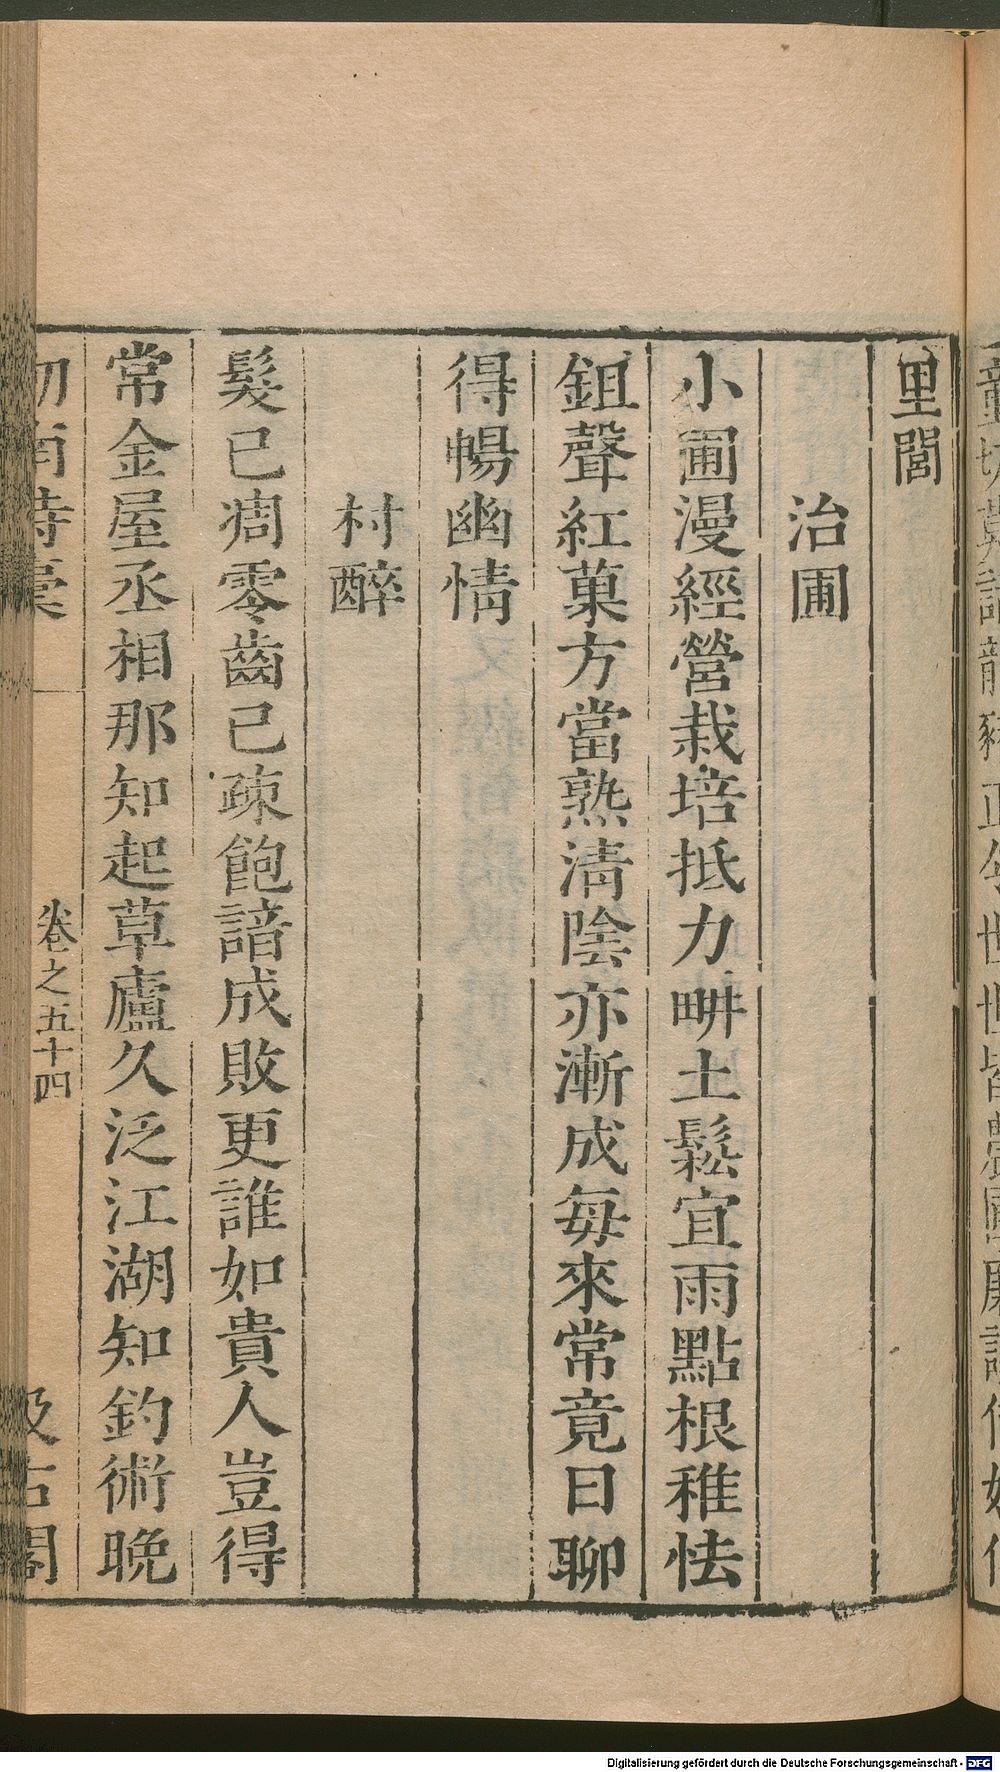 里閭
治圃
小圃漫經營栽培抵力畊土鬆宜雨點根稚怯
鉏聲紅菓方當熟清陰亦漸成每來常竟日聊
得暢幽情
村醉
髮已凋零齒已疎飽諳成敗更誰如貴人豈得
常金屋丞相那知起草廬久泛江湖知釣術晚
卷之五十四
汲古閣
Digitalisierung gefördert durch die Deutsche Forschungsgemeinschaft - DFG